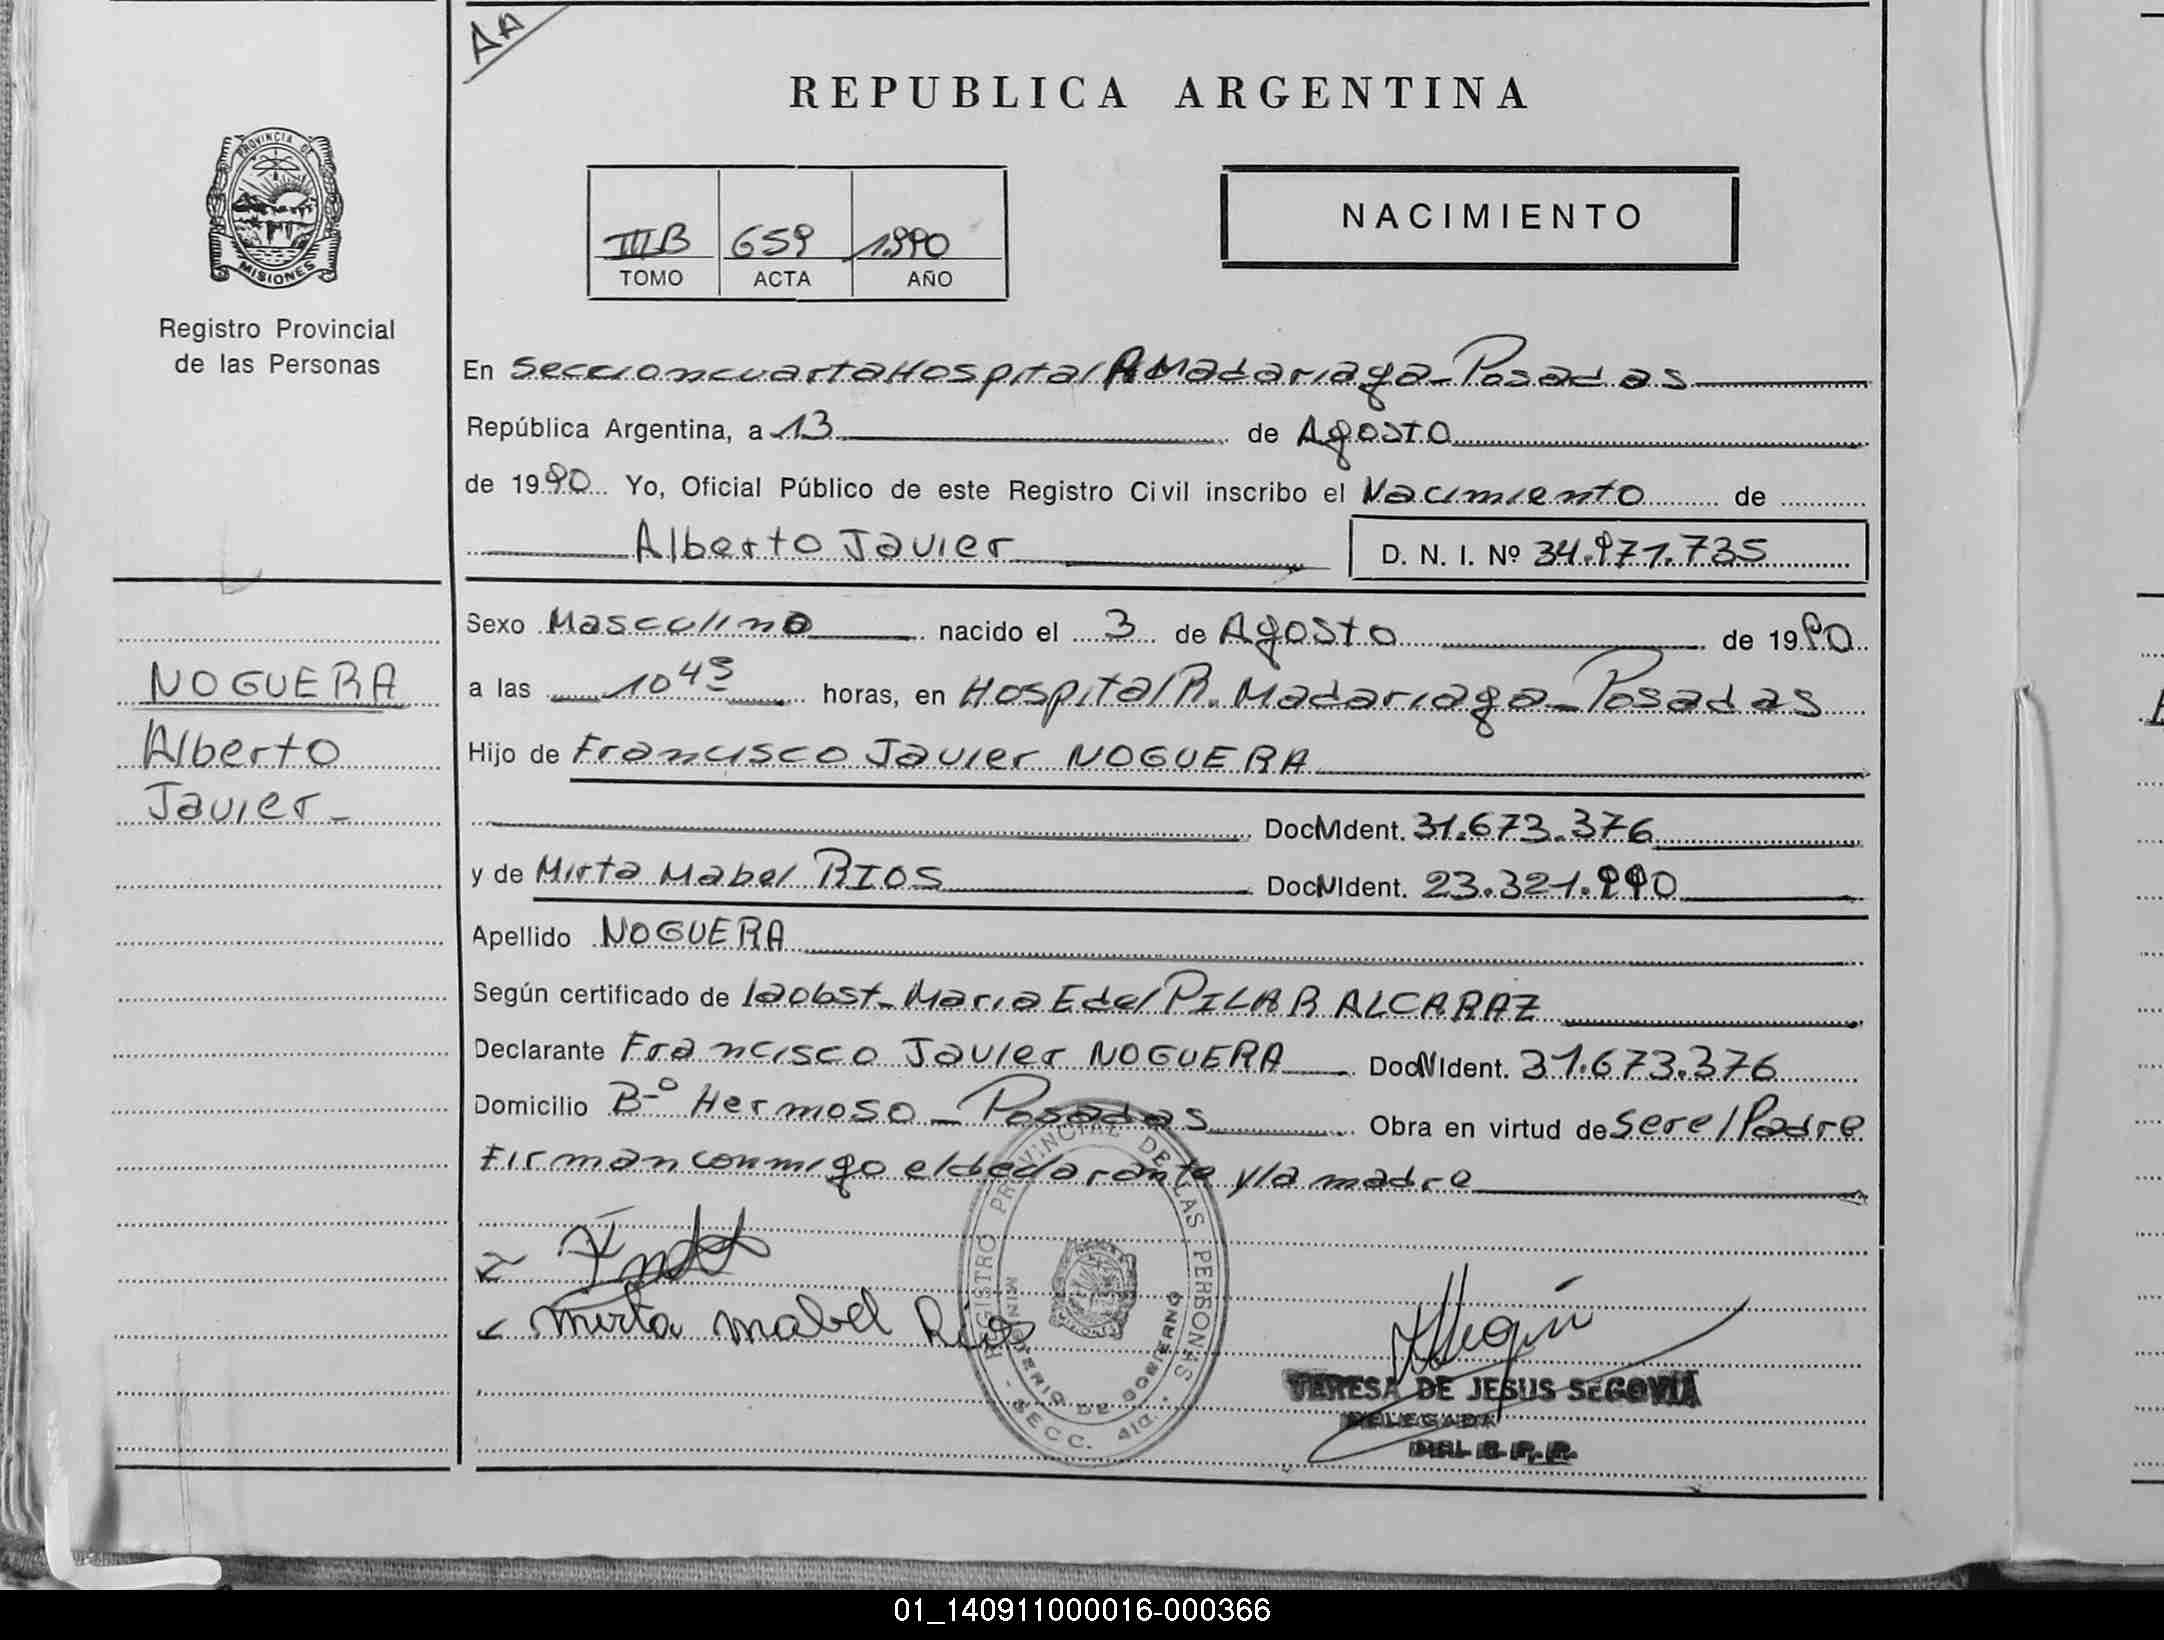 AA
REPUBLICA ARGENTINA
PROVINCIA DE
MISIONES
Registro Provincial
de las Personas
NACIMIENTO
III B 659 1990
TOMO ACTA AÑO
En Seccion cuarta Hospital R Madariaga - Posadas
República Argentina, a 13 de Agosto
de 1990 Yo, Oficial Público de este Registro Civil inscribo el Nacimiento de
Alberto Javier
D. N. I. Nº 34.971.735
Sexo Masculino nacido el 3 de Agosto de 1990
NOGUERA
Alberto
Javier -
a las 10 45 horas, en Hospital R. Madariaga - Posadas
Hijo de Francisco Javier NOGUERA
Doc. Ident. 31.673.376
y de Mirta Mabel RIOS Doc. Ident. 23.321.990
Apellido NOGUERA
Según certificado de la obst - Maria Edel PILAR ALCARAZ
Declarante Francisco Javier NOGUERA Doc. Ident. 31.673.376
Domicilio Bº Hermoso - Posadas Obra en virtud de ser el Padre
Firman conmigo el declarante y la madre
Mirta Mabel Ríos
REGISTRO PROVINCIAL DE LAS PERSONAS
MINISTERIO DE GOBIERNO
- SECC. 4ta. -
TERESA DE JESUS SEGOVIA
DELEGADA
DEL R. P. P.
01_140911000016-000366